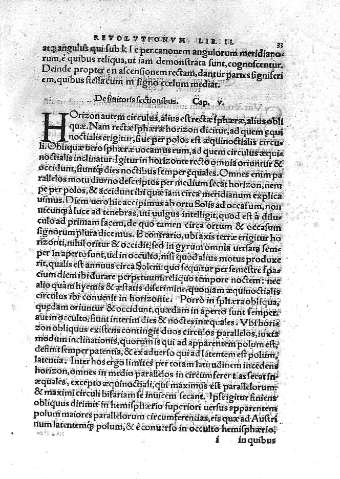 REVOLVTIONVM LIB. II. 33
atq; angulus qui sub k l e per canonem angulorum meridiano-
rum, è quibus reliqua, ut iam demonstrata sunt, cognoscentur.
Deinde propter e n ascensionem rectam, dantur partes signiferi
e m, quibus stella cum m signo cœlum mediat.
De finitoris sectionibus. Cap. v.
HOrizon autem circulus, alius est rectæ sphæræ, alius obli
quæ. Nam rectæ sphæræ horizon dicitur, ad quem æqui
noctialis erigitur, siue per polos est æquinoctialis circu
li. Obliquæ uero sphæræ uocamus eum, ad quem circulus æqui
noctialis inclinatur. Igitur in horizonte recto omnia oriuntur &
occidunt, fiuntq; dies noctibus semper æquales. Omnes enim pa
rallelos motu diurno descriptos per medium secat horizon, nem
pe per polos, & accidunt ibi quæ iam circa meridianum explica
uimus. Diem uero hic accipimus ab ortu Solis ad occasum, non
utcunq; à luce ad tenebras, uti uulgus intelligit, quod est à dilu-
culo ad primam facem, de quo tamen circa ortum & occasum
signorum plura dicemus. E contrario, ubi axis terræ erigitur ho
rizonti, nihil oritur & occidit, sed in gyrum omnia uersata sem-
per in aperto sunt, uel in occulto, nisi quod alius motus produxe
rit, qualis est annuus circa Solem: quo sequitur per semestre spa-
cium diem ibi durare perpetuum, reliquo tempore noctem: nec
alio quàm hyemis & æstatis discrimine, quoniam æquinoctialis
circulus ibi conuenit in horizonte. Porrò in sphæra obliqua,
quædam oriuntur & occidunt, quædam in aperto sunt semper,
aut in occulto, fiunt interim dies & noctes inæquales. Vbi horiz
zon obliquus existens contingit duos circulos parallelos, iuxta
modum inclinationis, quorum is qui ad apparentem polum est,
definit semper patentia, & ex aduerso qui ad latentem est polum,
latentia. Inter hos ergo limites per totam latitudinem incedens
horizon, omnes in medio parallelos in circumferentias secat in-
æquales, excepto æquinoctiali, qui maximus est parallelorum,
& maximi circuli bifariam se inuicem secant. Ipse igitur finiens
obliquus dirimit in hemisphærio superiori uersus apparentem
polum maiores parallelorum circumferentias, eis quæ ad Austri
num latentemq; polum, & è conuerso in occulto hemisphærio,
i in quibus